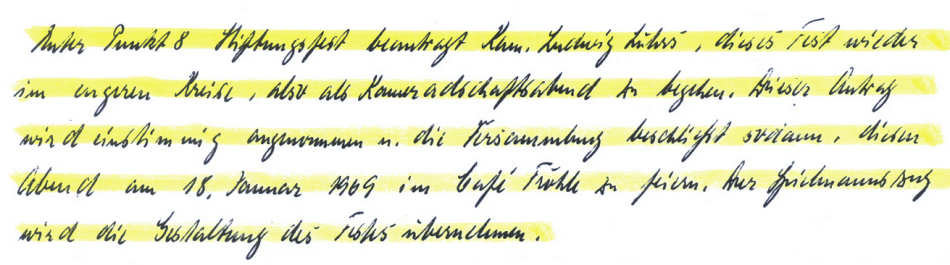 Unter Punkt 8 Stiftungsfest beantragt Kam. Ludwig Lührs, dieses Fest wieder
im engeren Kreise, also als Kameradschaftsabend zu begehen. Dieser Antrag
wird einstimmig angenommen u. die Versammlung beschließt sodann, diesen
Abend am 18. Januar 1969 im Café Fröhle zu feiern. Der Spielmannszug
wird die Gestaltung des Festes übernehmen.